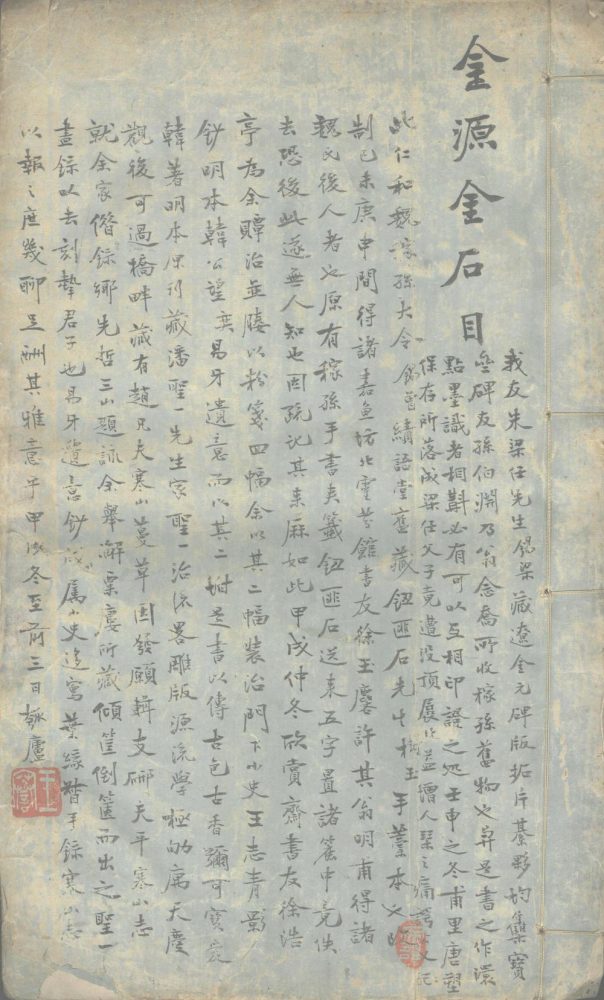 金源金石目
我友朱梁任先生錫梁藏遼金元碑版拓片綦夥均集寶
垒碑友孫伯淵乃翁念喬所收稼孫舊物也弁是書之作還
點墨識者相斠必有可以互相印證之処壬申之冬甫里唐塑
保存所落成梁任父子竟遭沒頂展此益增人琴之痛諤又記
此仁和魏稼孫大令錫曾績語堂舊藏鈕匪石先生樹玉手藁本又
制己未庚申間得諸嘉魚坊北靈芬館書友徐玉麐許其翁明甫得諸
魏氏後人者也原有稼孫手書夾籤鈕匪石送來五字置諸篋中竟佚
去恐後此遂無人知也因疏記其來厤如此甲戌仲冬欣賞齋書友徐浩
亭為余贉治並賸以粉箋四幅余以其二幅裝治門下小史王志青影
鈔明本韓公望奕易牙遺意而以其二坿是書以傳古色古香彌可寶
韓著明本原刊藏潘聖一先生家聖一治流畧雕版源流學極劬寓天慶
觀後可過橋畔藏有趙凡夫寒山蔓草因發願輯支硎天平寒山志
就余家借錄鄉先哲三山題詠余舉澥粟廔所藏傾筐倒篋而出之聖一
盡錄以去刻摯君子也易牙遺意鈔成屬小史迻寫葉緣督手錄寒山志
以報之庶幾聊足酬其雅意乎甲戌冬至前三日瓠廬